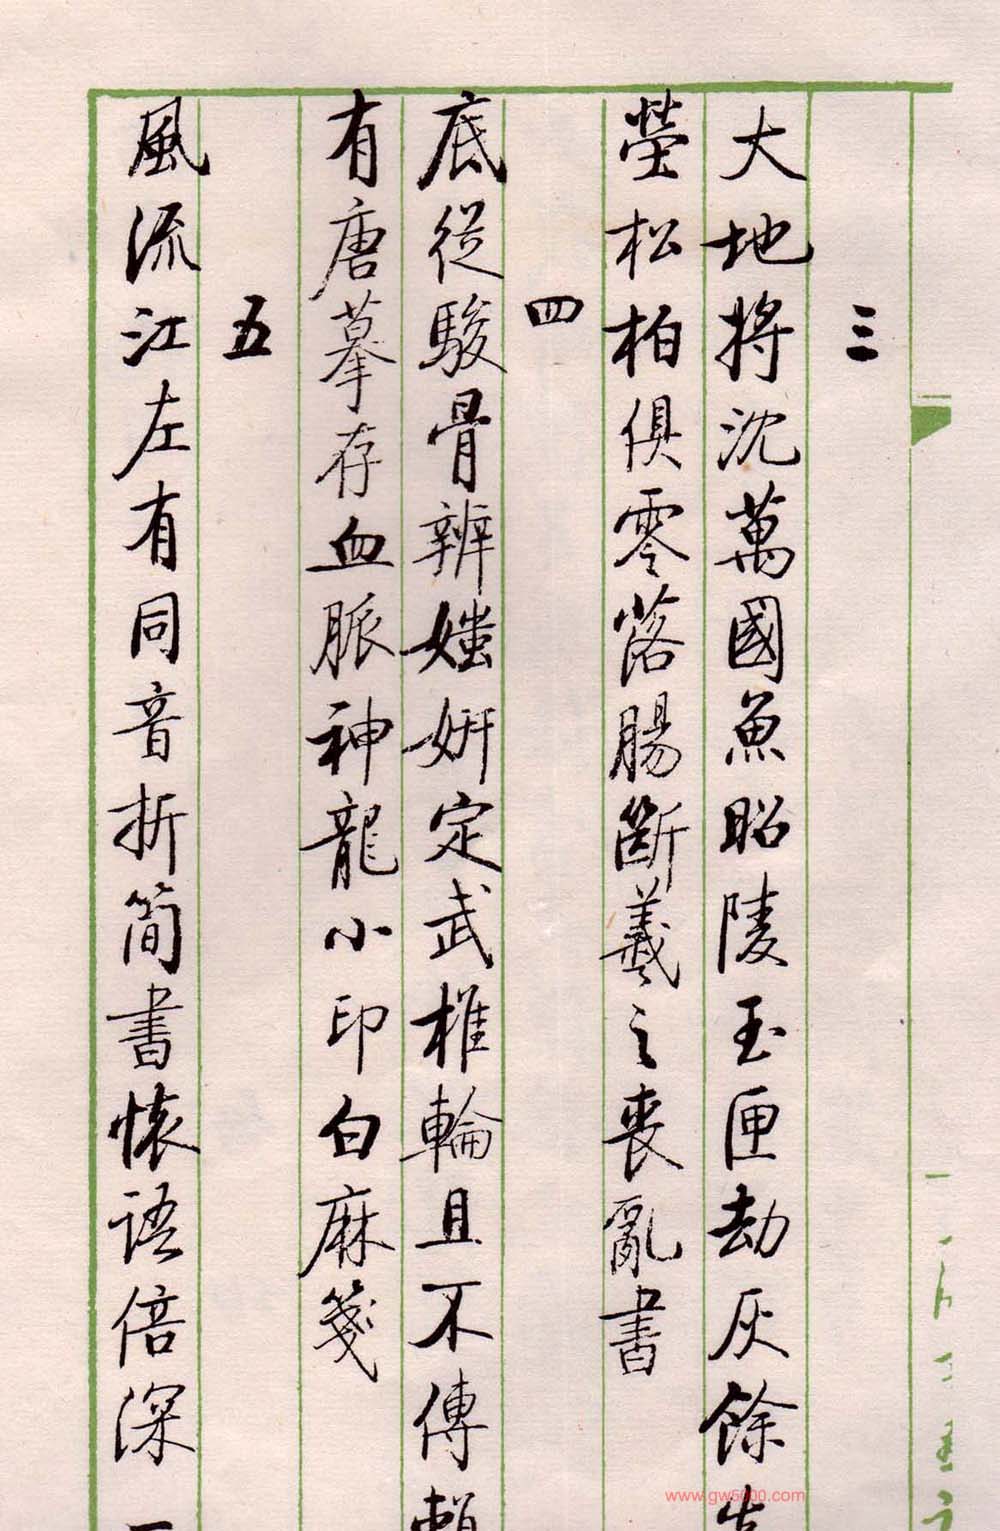 三
大地將沈萬國魚昭陵玉匣劫灰餘先
塋松柏俱零落腸斷羲之喪亂書
四
底從駿骨辨媸妍定武椎輪且不傳賴
有唐摹存血脈神龍小印白麻箋
五
風流江左有同音折簡書懷語倍深
www.gw5000.com